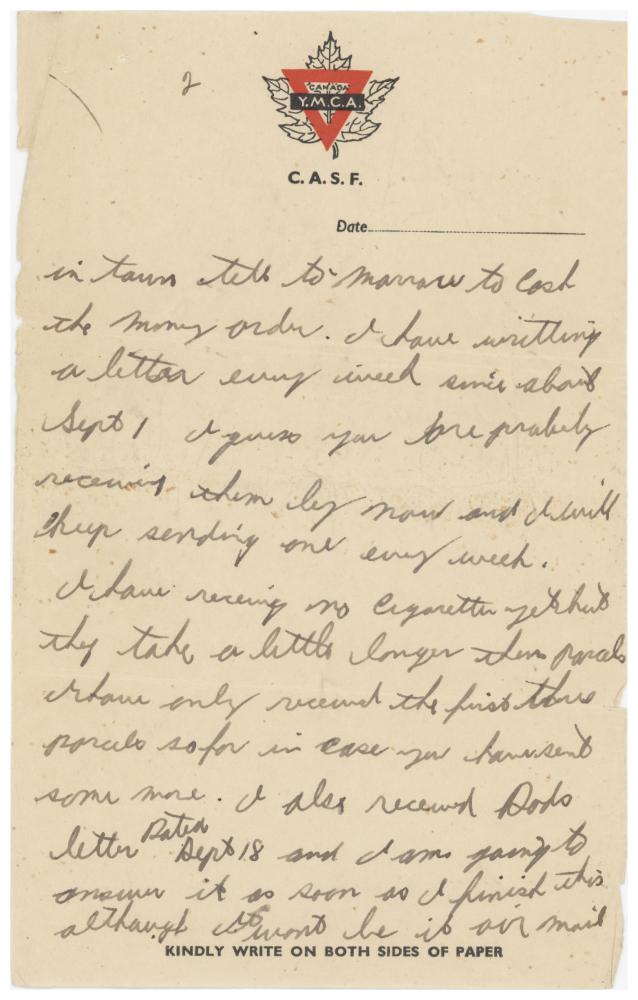 2
CANADA
Y.M.C.A.
C.A.S.F.
Date
in town to morrow to Cash
the Money order. I have writting
a letter every week since about
Sept 1 I guess you are probely
receiving them by now and I will
keep sending one every week.
I have receing no Cigarettes yet but
they take a little longer then parcels
I have only received the first three
parcels so far in case you have sent
some more. I also received Dads
letter Dated Sept 18 and I am going to
answer it as soon as I finish this
although it wont be air mail
KINDLY WRITE ON BOTH SIDES OF PAPER